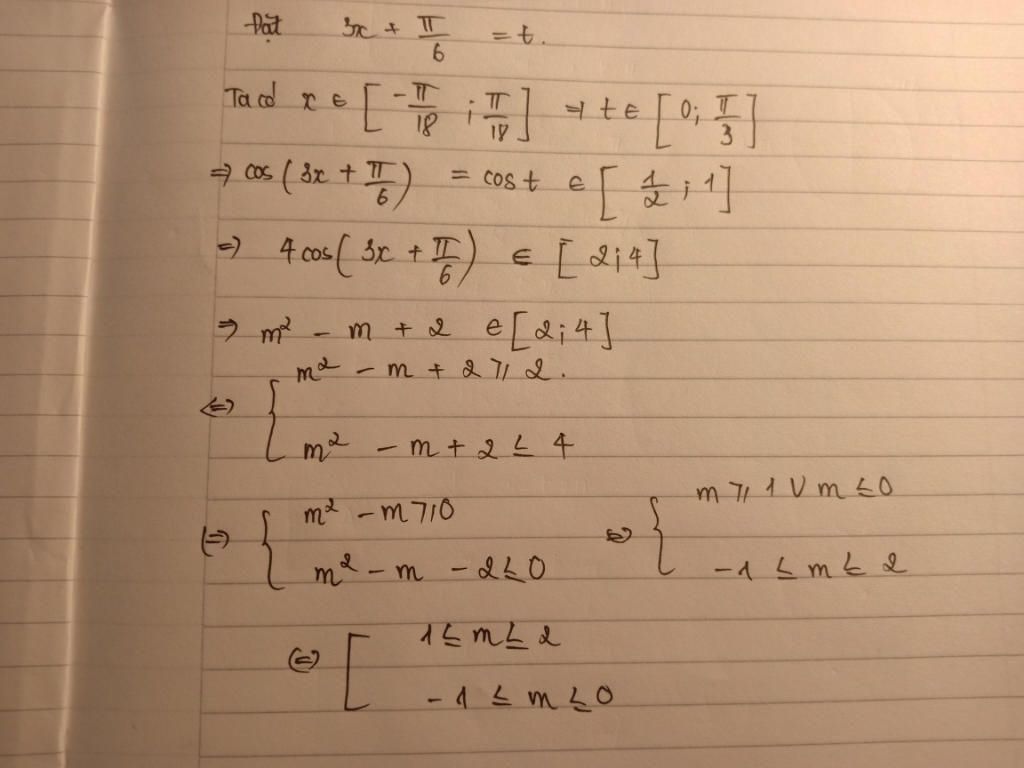 Đặt 3x + π/6 = t.
Ta có x ∈ [-π/18 ; π/18] ⇒ t ∈ [0; π/3]
⇒ cos(3x + π/6) = cos t ∈ [1/2 ; 1]
⇒ 4cos(3x + π/6) ∈ [2;4]
⇒ m² - m + 2 ∈ [2;4]
⇔ { m² - m + 2 ≥ 2.
m² - m + 2 ≤ 4
⇔ { m² - m ≥ 0 ⇔ { m ≥ 1 ∨ m ≤ 0
m² - m - 2 ≤ 0 -1 ≤ m ≤ 2
⇔ [ 1 ≤ m ≤ 2
-1 ≤ m ≤ 0